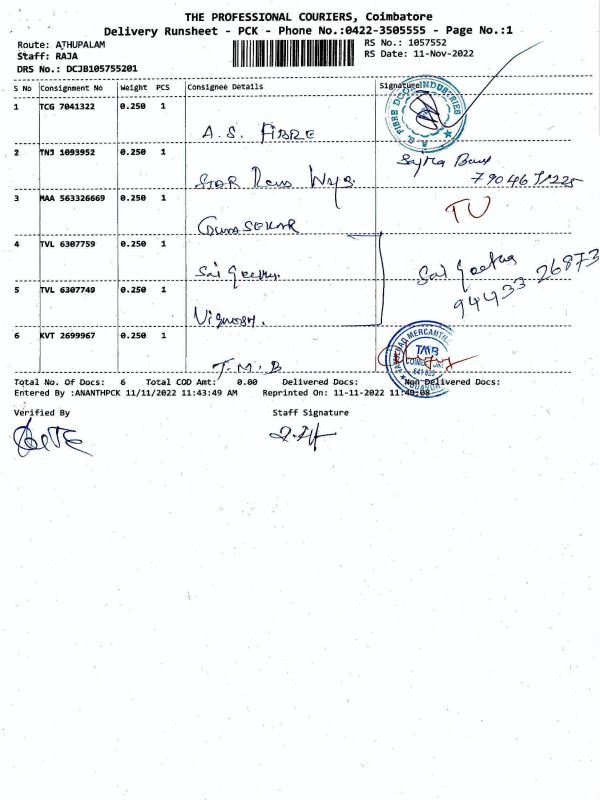 THE PROFESSIONAL COURIERS, Coimbatore
Delivery Runsheet - PCK - Phone No.:0422-3505555 - Page No.:1
Route: ATHUPALAM
RS No.: 1057552
Staff: RAJA
RS Date: 11-Nov-2022
DRS No.: DCJB105755201
S No Consignment No Weight PCS Consignee Details Signature
1 TCG 7041322 0.250 1
A.S. FIBRE
2 TNJ 1093952 0.250 1
STAR
3 MAA 563326669 0.250 1
TU
GUNASEKAR
4 TVL 6307759 0.250 1
Sai Geetha.
Sai Geetha
94433 26873
5 TVL 6307749 0.250 1
Vignesh.
6 KVT 2699967 0.250 1
T.M.B
TMB
Total No. Of Docs: 6 Total COD Amt: 0.00 Delivered Docs: Non Delivered Docs:
Entered By :ANANTHPCK 11/11/2022 11:43:49 AM Reprinted On: 11-11-2022 11:49:08
Verified By Staff Signature